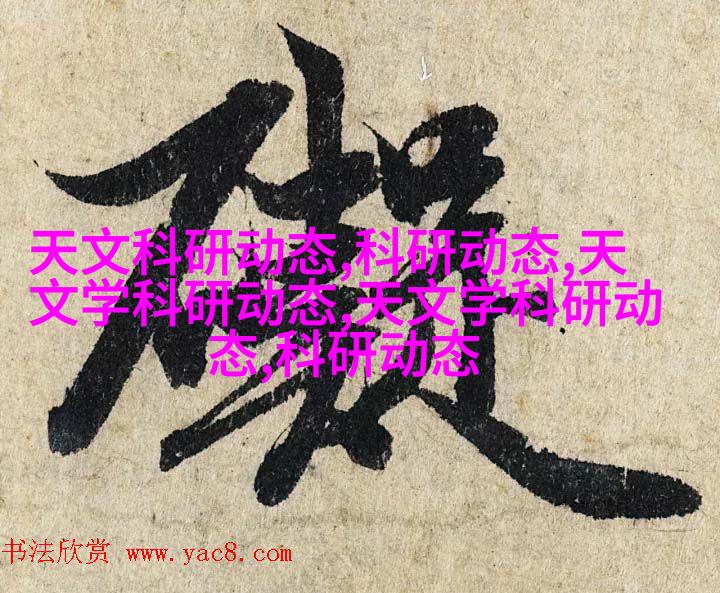 天文科研动态,科研动态,天
文学科研动态,天文学科研动
态,科研动态
书法欣赏 www.yac8.com